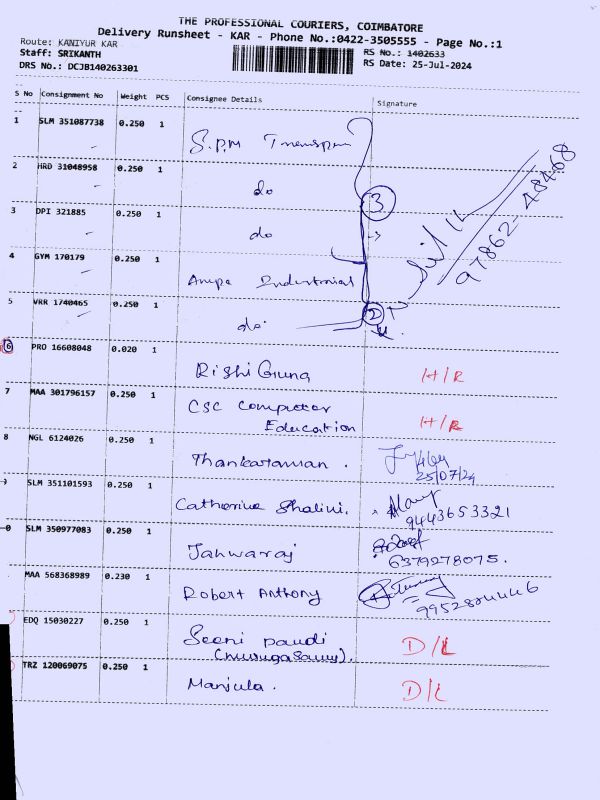 THE PROFESSIONAL COURIERS, COIMBATORE
Delivery Runsheet - KAR - Phone No.:0422-3505555 - Page No.:1
Route: KANIYUR KAR
Staff: SRIKANTH
DRS No.: DCJB140263301
RS No.: 1402633
RS Date: 25-Jul-2024
S No Consignment No Weight PCS Consignee Details Signature
1 SLM 351087738 0.250 1 S.P.M
2 HRD 31048958 0.250 1 do 3
3 DPI 321885 0.250 1 do
97862-48468
4 GYM 170179 0.250 1 Industrial
5 VRR 1740465 0.250 1 do 2
6 PRO 16608048 0.020 1 Rishi Guna H/R
7 MAA 301796157 0.250 1 CSC Computer
Education H/R
8 NGL 6124026 0.250 1 Thankaraman .
25/07/24
SLM 351101593 0.250 1 Catherine Shalini.
9443653321
0 SLM 350977083 0.250 1 Jahwaraj
6379278075.
MAA 568368989 0.230 1 Robert Anthony
EDQ 15030227 0.250 1 Seeni pandi
(murugasamy). D/L
TRZ 120069075 0.250 1 Manjula. D/L